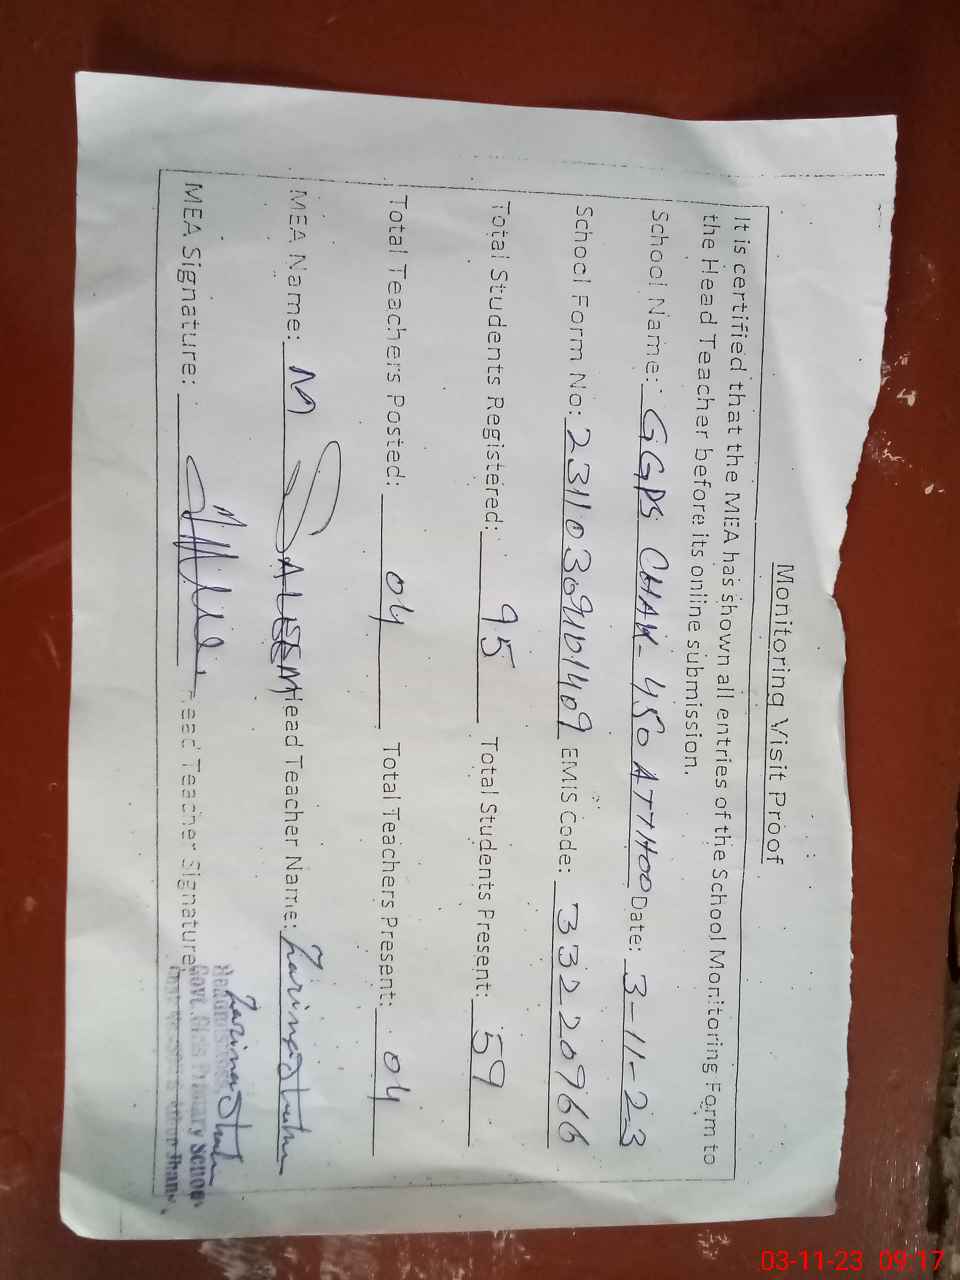 Monitoring Visit Proof
It is certified that the MEA has shown all entries of the School Monitoring Form to
the Head Teacher before its online submission.
School Name: GGPS CHAK-450 ATTHOO Date: 3-11-23
School Form No: EMIS Code: 33220966
Total Students Registered: 95 Total Students Present: 59
Total Teachers Posted: 04 Total Teachers Present: 04
MEA Name: M SALEEM Head Teacher Name: Zarina
MEA Signature: Head Teacher Signature
Zarina
Headmistress
Govt. Girls Primary School
03-11-23 09:17